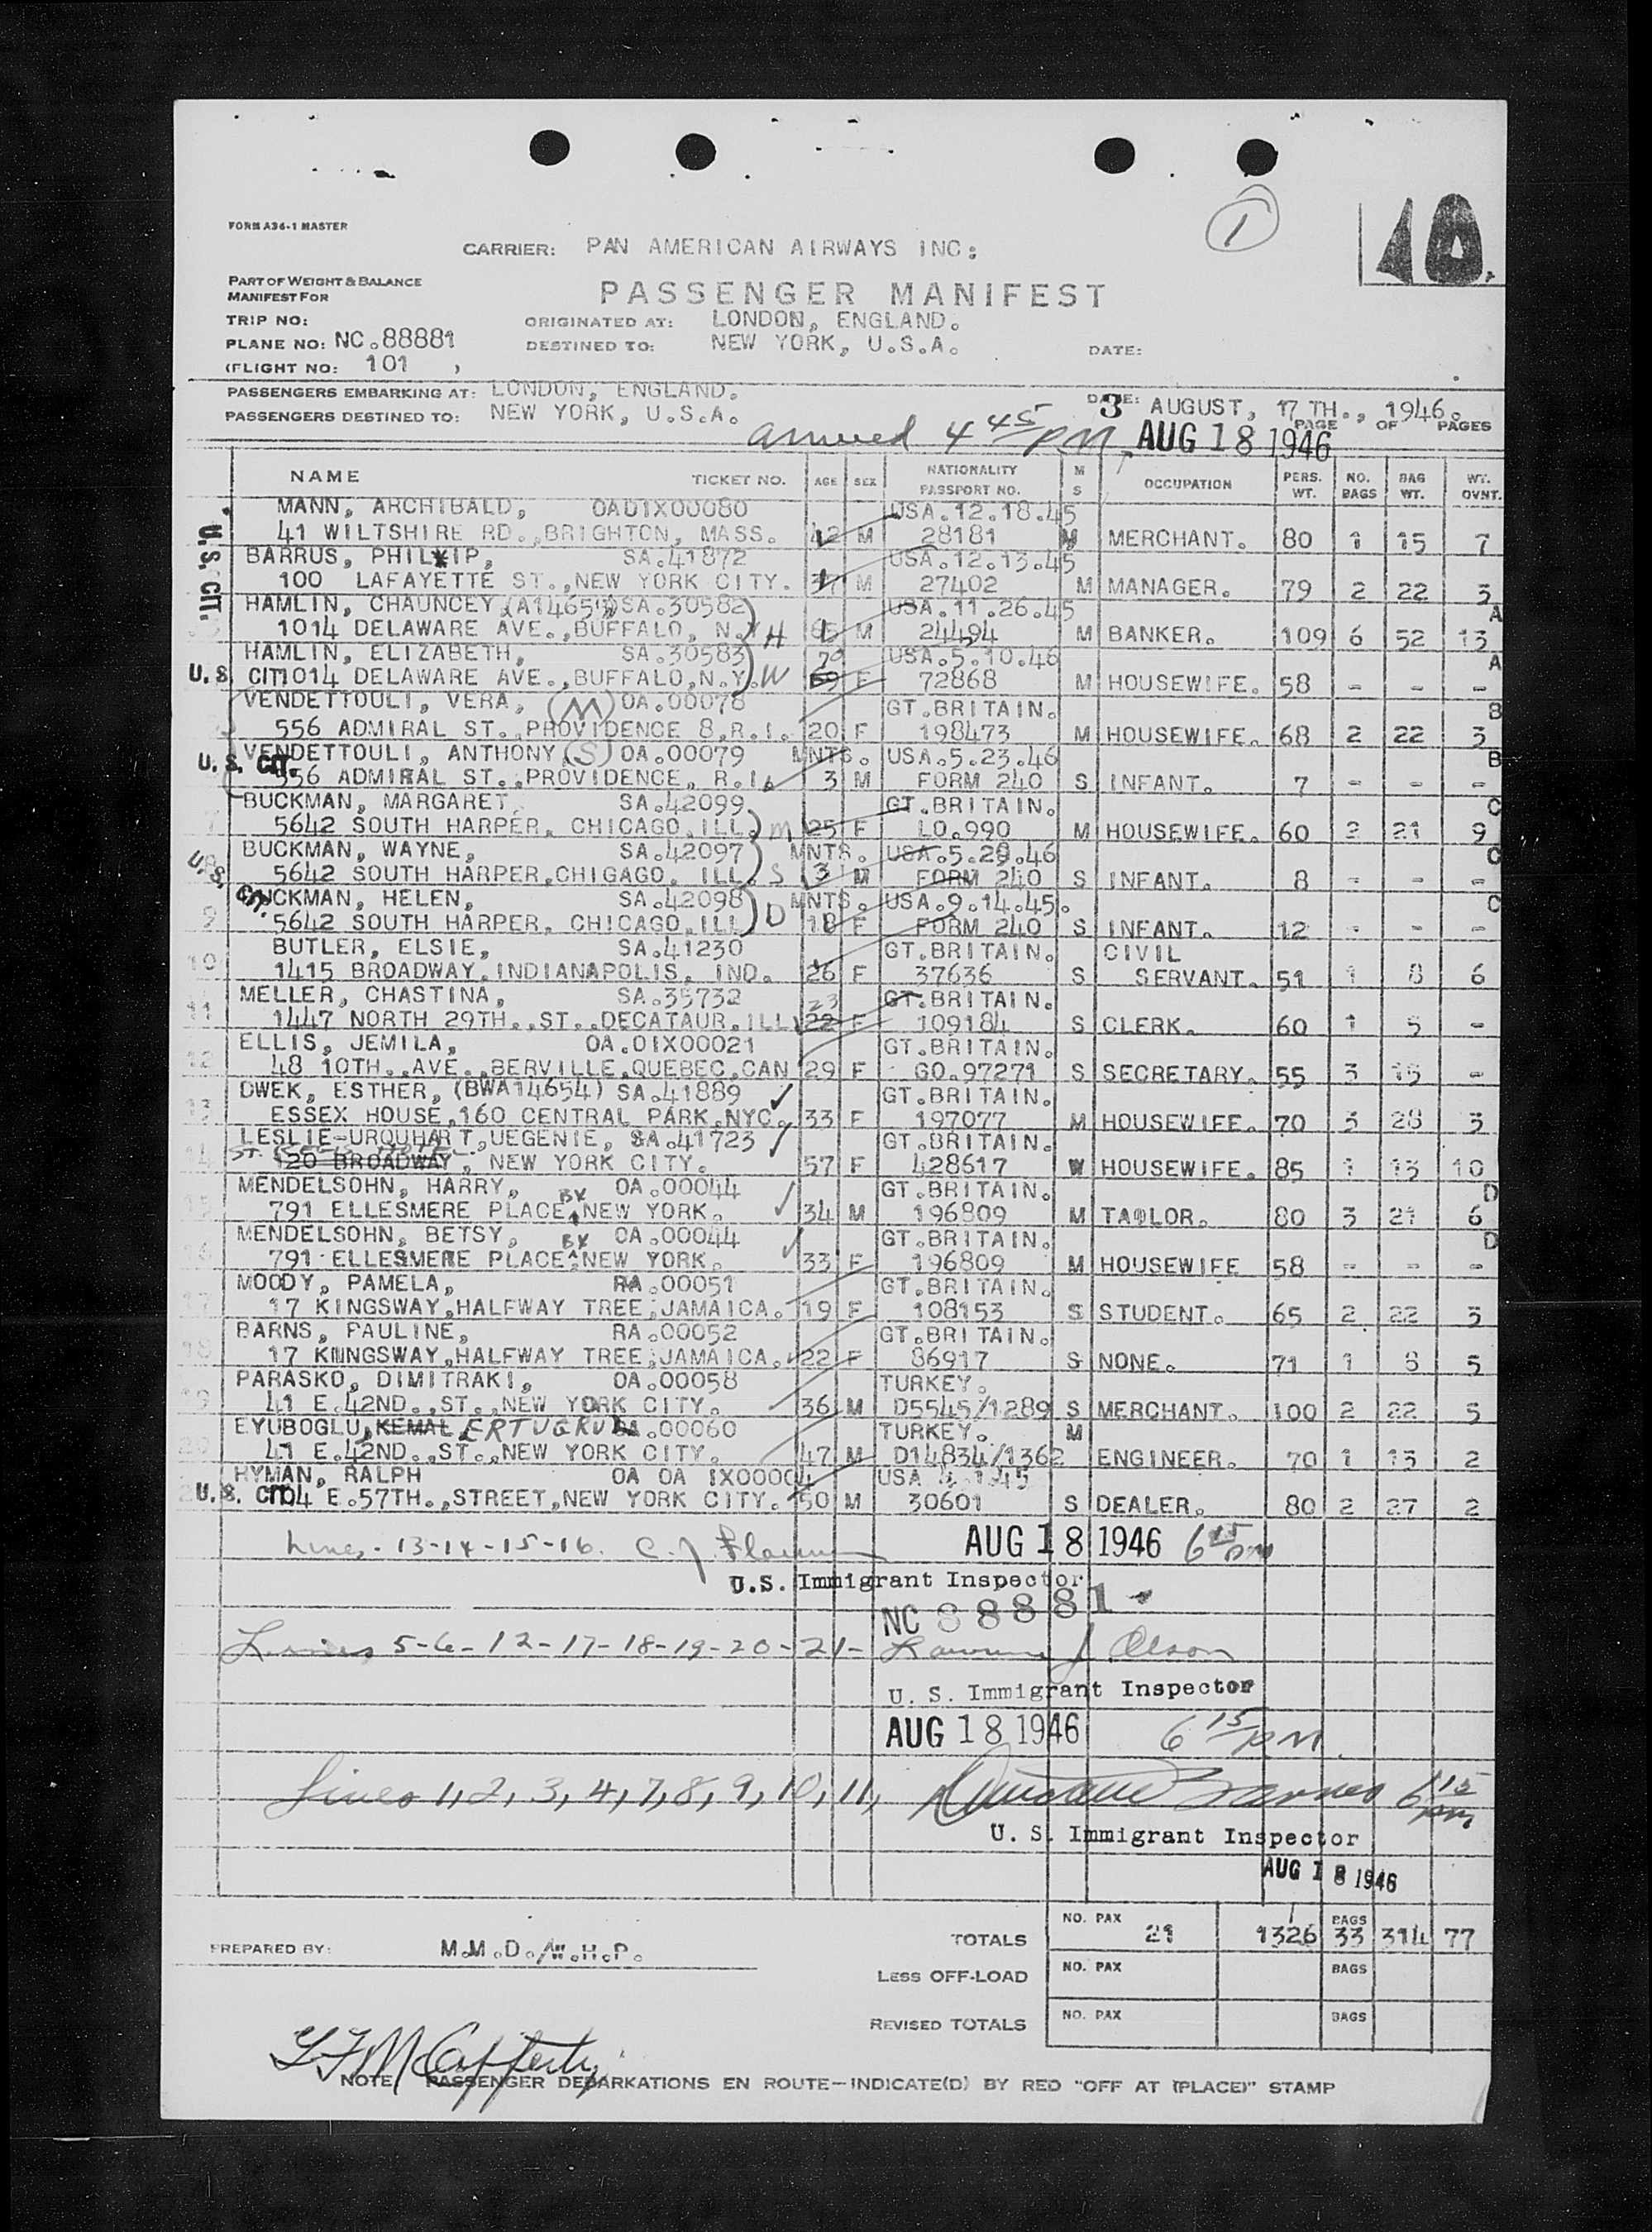 1
10
FORM A36-1 MASTER
CARRIER: PAN AMERICAN AIRWAYS INC:
PART OF WEIGHT & BALANCE
MANIFEST FOR
PASSENGER MANIFEST
TRIP NO: ORIGINATED AT: LONDON, ENGLAND.
PLANE NO: NC.88881 DESTINED TO: NEW YORK, U.S.A. DATE:
(FLIGHT NO: 101 )
PASSENGERS EMBARKING AT: LONDON, ENGLAND. DATE: AUGUST, 17 TH., 1946.
PASSENGERS DESTINED TO: NEW YORK, U.S.A. 3 PAGE OF PAGES
arrived 4 45 PM AUG 18 1946
NAME TICKET NO. AGE SEX NATIONALITY PASSPORT NO. M S OCCUPATION PERS. WT. NO. BAGS BAG WT. WT. OVNT.
MANN, ARCHIBALD, OAD1X00080 USA.12.18.45
U.S. CIT. 41 WILTSHIRE RD.,BRIGHTON, MASS. 42 M 28181 M MERCHANT. 80 1 15 7
BARRUS, PHILIP, SA.41872 USA.12.13.45
100 LAFAYETTE ST.,NEW YORK CITY. 37 M 27402 M MANAGER. 79 2 22 3
HAMLIN, CHAUNCEY SA.30582 USA.11.26.45 A
1014 DELAWARE AVE.,BUFFALO, N.Y. H 65 M 24494 M BANKER. 109 6 52 13
HAMLIN, ELIZABETH, SA.30583 70 USA.5.10.46 A
U.S. CIT 1014 DELAWARE AVE.,BUFFALO,N.Y. W 69 F 72868 M HOUSEWIFE. 58 - - -
VENDETTOULI, VERA, (M) OA.00078 GT.BRITAIN. B
556 ADMIRAL ST.,PROVIDENCE 8,R.I. 20 F 198473 M HOUSEWIFE. 68 2 22 3
VENDETTOULI, ANTHONY (S) OA.00079 MNTS. USA.5.23.46 B
U.S. CIT. 556 ADMIRAL ST.,PROVIDENCE, R.I. 3 M FORM 240 S INFANT. 7 - - -
BUCKMAN, MARGARET, SA.42099 GT.BRITAIN. C
7 5642 SOUTH HARPER, CHICAGO,ILL. M 25 F LO.990 M HOUSEWIFE. 60 2 21 9
BUCKMAN, WAYNE, SA.42097 MNTS. USA.5.29.46 C
U.S. CIT. 5642 SOUTH HARPER,CHIGAGO, ILL. S 3 M FORM 240 S INFANT. 8 - - -
BUCKMAN, HELEN, SA.42098 MNTS. USA.9.14.45. C
9 5642 SOUTH HARPER, CHICAGO,ILL D 18 F FORM 240 S INFANT. 12 - - -
BUTLER, ELSIE, SA.41230 GT.BRITAIN. CIVIL
10 1415 BROADWAY,INDIANAPOLIS, IND. 26 F 37636 S SERVANT. 51 1 8 6
MELLER, CHASTINA, SA.35732 23 GT.BRITAIN.
11 1447 NORTH 29TH.,ST.,DECATAUR,ILL 22 F 109184 S CLERK. 60 1 5 -
ELLIS, JEMILA, OA.OIX00021 GT.BRITAIN.
12 48 10TH.,AVE.,BERVILLE,QUEBEC,CAN 29 F GO.97271 S SECRETARY. 55 3 15 -
DWEK, ESTHER, (BWA14654) SA.41889 GT.BRITAIN.
13 ESSEX HOUSE,160 CENTRAL PARK,NYC. 33 F 197077 M HOUSEWIFE. 70 3 28 3
LESLIE-URQUHART,UEGENIE, SA.41723 GT.BRITAIN.
14 120 BROADWAY, NEW YORK CITY. 57 F 428617 W HOUSEWIFE. 85 1 13 10
MENDELSOHN, HARRY, OA.00044 GT.BRITAIN. D
15 791 ELLESMERE PLACE, BX NEW YORK. 34 M 196809 M TAILOR. 80 3 21 6
MENDELSOHN, BETSY, OA.00044 GT.BRITAIN. D
16 791 ELLESMERE PLACE, BX NEW YORK. 33 F 196809 M HOUSEWIFE 58 - - -
MOODY, PAMELA, RA.00051 GT.BRITAIN.
17 17 KINGSWAY,HALFWAY TREE,JAMAICA. 19 F 108153 S STUDENT. 65 2 22 3
BARNS, PAULINE, RA.00052 GT.BRITAIN.
18 17 KINGSWAY,HALFWAY TREE,JAMAICA. 22 F 86917 S NONE. 71 1 8 5
PARASKO, DIMITRAKI, OA.00058 TURKEY.
19 41 E.42ND.,ST.,NEW YORK CITY. 36 M D5545/1289 S MERCHANT. 100 2 22 5
EYUBOGLU,KEMAL ERTUGRUL OA.00060 TURKEY. M
20 41 E.42ND.,ST.,NEW YORK CITY. 47 M D14834/1362 ENGINEER. 70 1 13 2
HYMAN, RALPH OA OA IX00004 USA
U.S. CIT 104 E.57TH.,STREET,NEW YORK CITY. 50 M 30601 S DEALER. 80 2 27 2
Lines - 13-14-15-16. AUG 18 1946 6 15 PM
U.S. Immigrant Inspector
NC 88881
Lines 5-6-12-17-18-19-20-21- Lawrence J Olson
U. S. Immigrant Inspector
AUG 18 1946 6 15 PM
Lines 1,2,3,4,7,8,9,10,11, 6 15 pm
U. S. Immigrant Inspector
AUG 18 1946
TOTALS NO. PAX 21 1326 BAGS 33 314 77
PREPARED BY: M.M.D./W.H.P.
LESS OFF-LOAD NO. PAX BAGS
REVISED TOTALS NO. PAX BAGS
McCafferty
NOTE PASSENGER DEBARKATIONS EN ROUTE—INDICATE(D) BY RED "OFF AT (PLACE)" STAMP